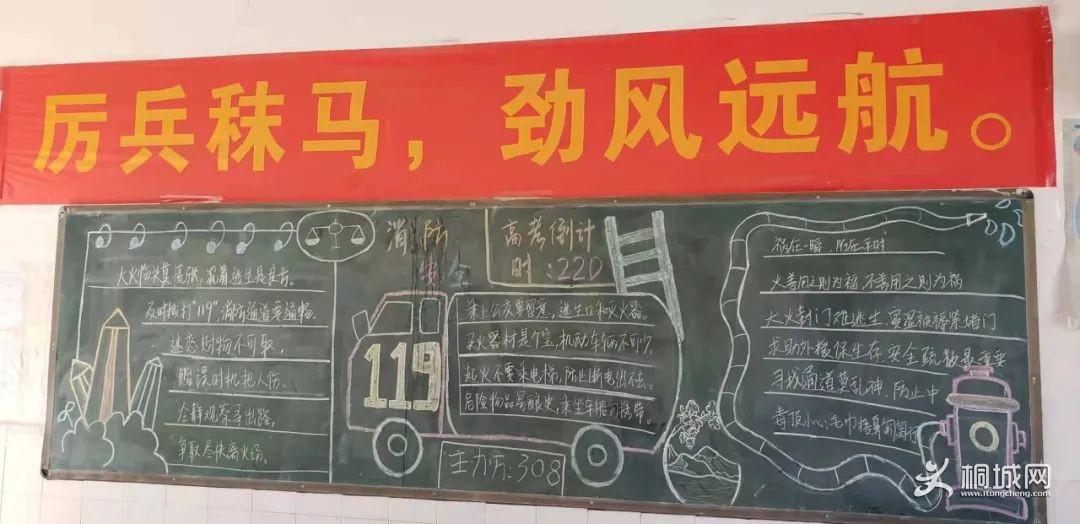 厉兵秣马，劲风远航。
消防
安全
高考倒计
时：220
大火临头莫慌张，灵着逃生是良方。
及时拨打"119"，消防通道要通畅。
迷恋财物不可取，
贻误时机把人伤。
冷静观察寻出路，
争取尽快离火场。
119
乘上公交要留意，逃生口和灭火器。
灭火器材是个宝，机动车辆不可少。
起火不要乘电梯，防止断电出不去。
危险物品易酿灾，乘坐车船勿携带。
主办方：308
祸在一瞬，防在平时
火善用之则为福，不善用之则为祸
大火封门难逃生，紧堵门
求助外援保生存，安全疏散最重要
寻找通道莫乱神，防止中
毒须小心，毛巾捂鼻匍匐行
桐城网
www.itongcheng.com